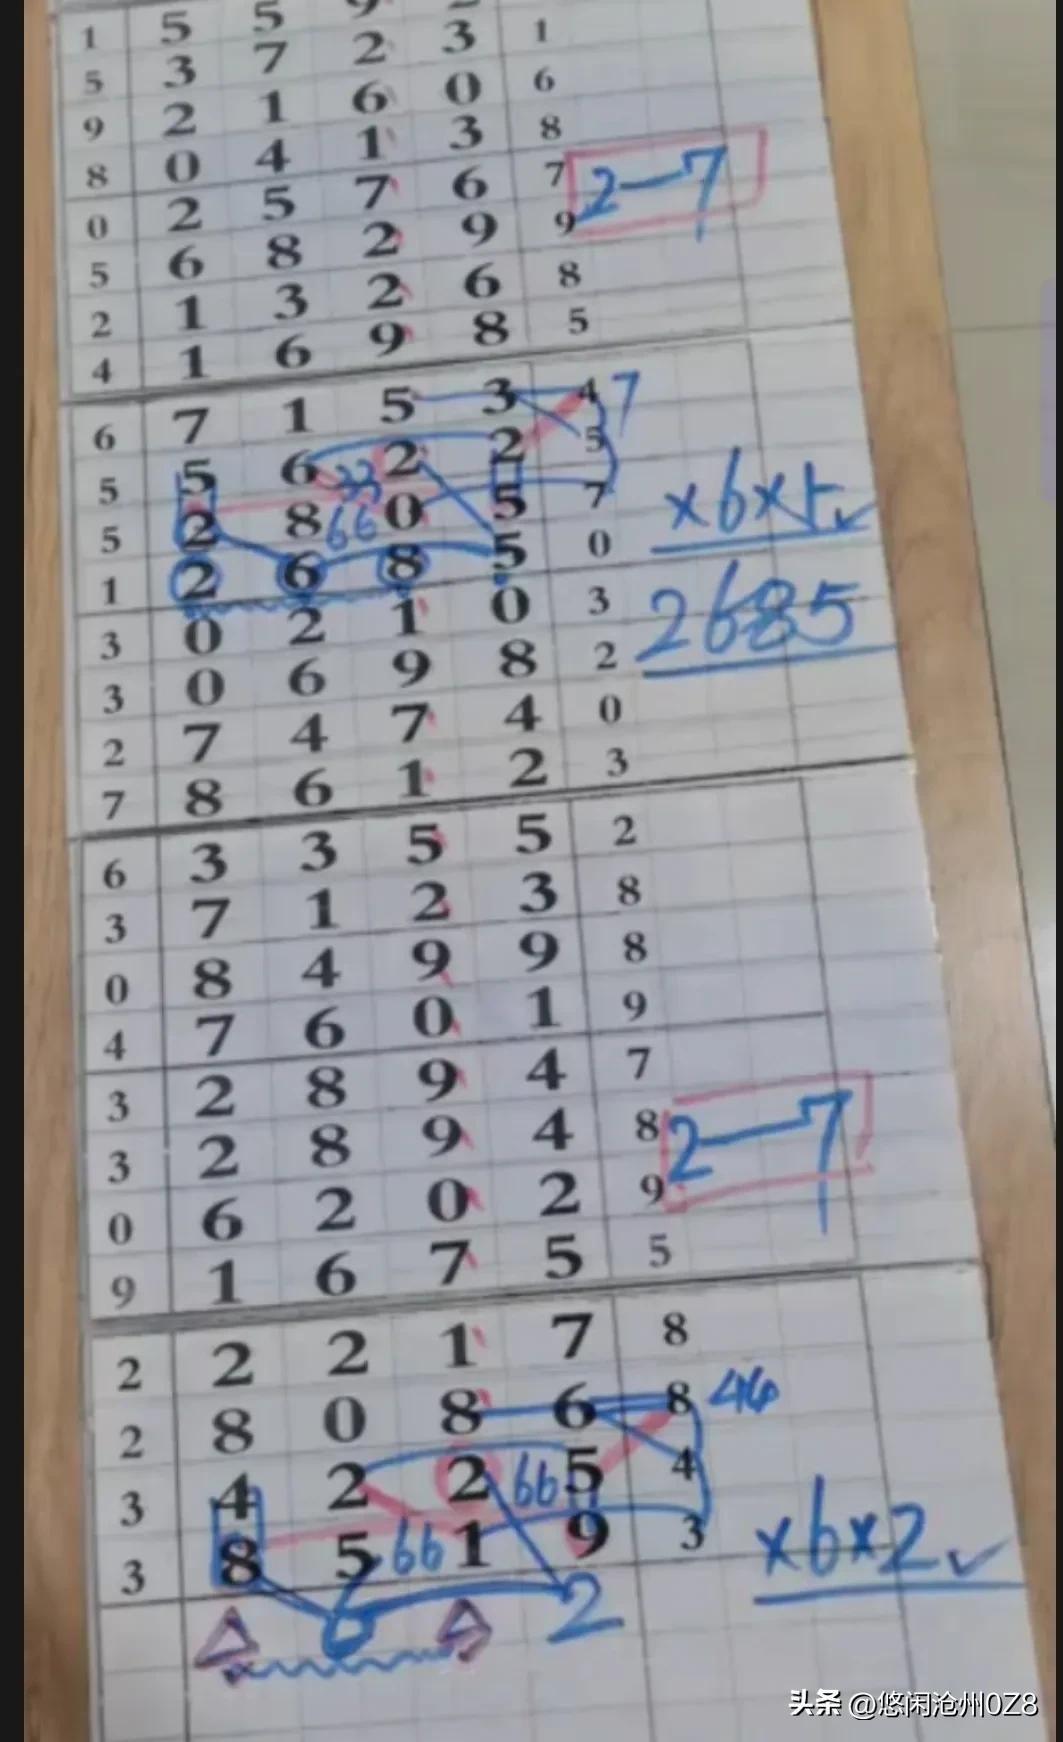 1 5 5 9
5 3 7 2 3 1
9 2 1 6 0 6
8 0 4 1 3 8
0 2 5 7 6 7 2—7
5 6 8 2 9 9
2 1 3 2 6 8
4 1 6 9 8 5
6 7 1 5 3 4 7
5 5 6 33 2 2 5
5 2 8 66 0 5 7 ×6×5✓
1 2 6 8 5 0
3 0 2 1 0 3 2685
3 0 6 9 8 2
2 7 4 7 4 0
7 8 6 1 2 3
6 3 3 5 5 2
3 7 1 2 3 8
0 8 4 9 9 8
4 7 6 0 1 9
3 2 8 9 4 7
3 2 8 9 4 8 2—7
0 6 2 0 2 9
9 1 6 7 5 5
2 2 2 1 7 8
2 8 0 8 6 8 46
3 4 2 2 66 5 4
3 8 5 66 1 9 3 ×6×2✓
△ 6 △ 2
头条 @悠闲沧州0Z8